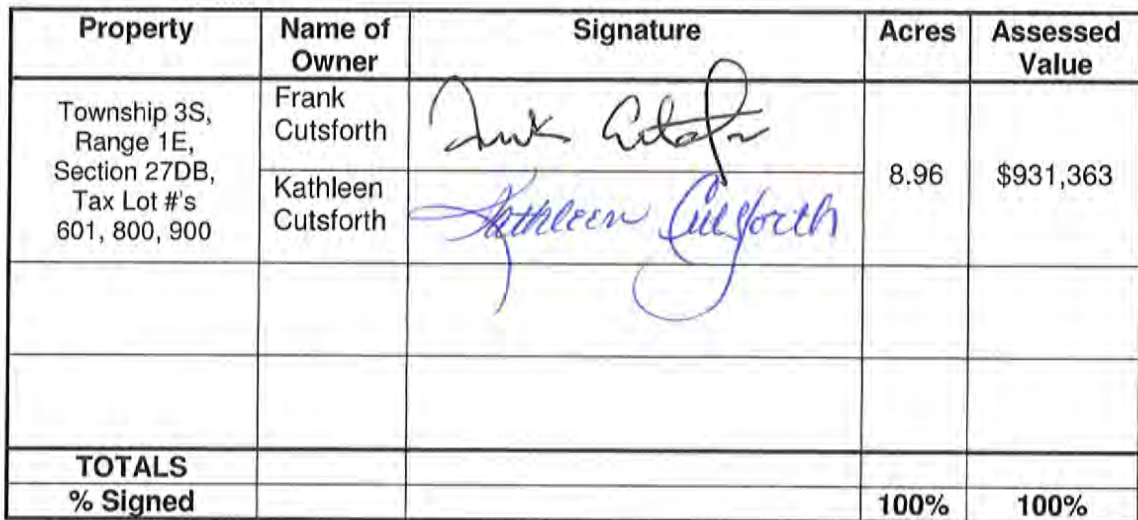 Property Name of Owner Signature Acres Assessed Value
Township 3S,
Range 1E,
Section 27DB,
Tax Lot #'s
601, 800, 900
Frank
Cutsforth
Frank Cutsforth
Kathleen
Cutsforth
Kathleen Cutsforth
8.96 $931,363
TOTALS
% Signed 100% 100%